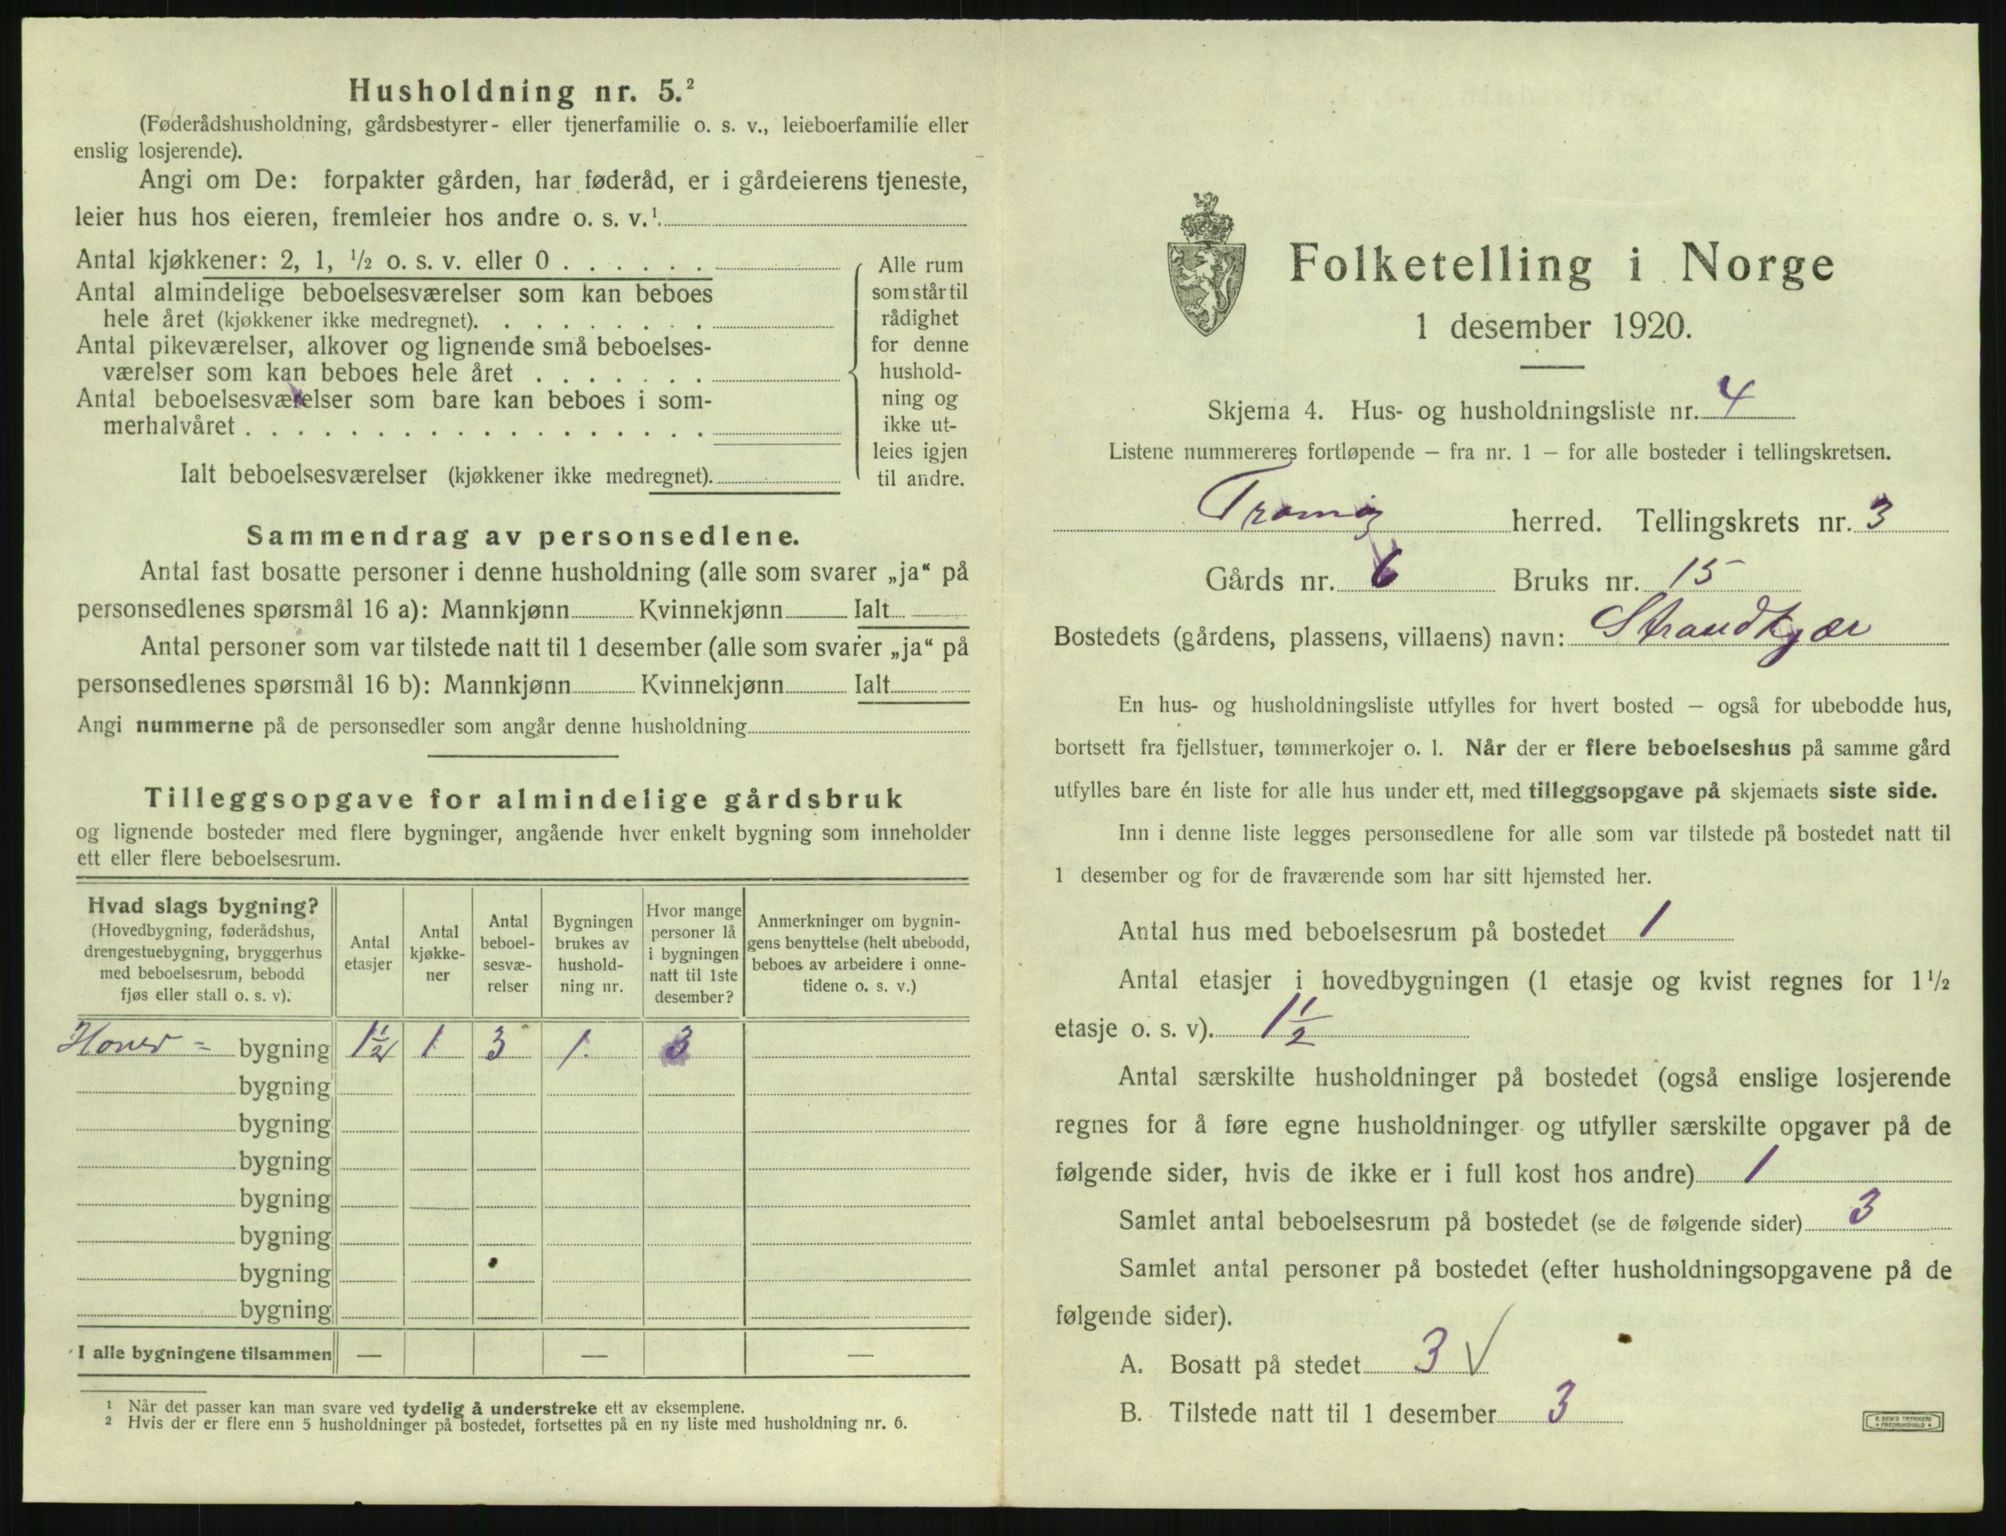 Husholdning nr. 5.²
(Føderådshusholdning, gårdsbestyrer- eller tjenerfamilie o. s. v., leieboerfamilie eller
enslig losjerende).
Angi om De: forpakter gården, har føderåd, er i gårdeierens tjeneste,
leier hus hos eieren, fremleier hos andre o. s. v.¹
Antal kjøkkener: 2, 1, ½ o. s. v. eller 0 . . . . . .
Antal almindelige beboelsesværelser som kan beboes
hele året (kjøkkener ikke medregnet). . . . . . . . .
Antal pikeværelser, alkover og lignende små beboelses-
værelser som kan beboes hele året . . . . . . .
Antal beboelsesværelser som bare kan beboes i som-
merhalvåret . . . . . . . . . . . . . . . . . .
Ialt beboelsesværelser (kjøkkener ikke medregnet).
Alle rum
som står til
rådighet
for denne
hushold-
ning og
ikke ut-
leies igjen
til andre.
Sammendrag av personsedlene.
Antal fast bosatte personer i denne husholdning (alle som svarer „ja“ på
personsedlenes spørsmål 16 a): Mannkjønn Kvinnekjønn Ialt
Antal personer som var tilstede natt til 1 desember (alle som svarer „ja“ på
personsedlenes spørsmål 16 b): Mannkjønn Kvinnekjønn Ialt
Angi nummerne på de personsedler som angår denne husholdning
Tilleggsopgave for almindelige gårdsbruk
og lignende bosteder med flere bygninger, angående hver enkelt bygning som inneholder
ett eller flere beboelsesrum.
Hvad slags bygning?
(Hovedbygning, føderådshus,
drengestuebygning, bryggerhus
med beboelsesrum, bebodd
fjøs eller stall o. s. v).
Antal
etasjer
Antal
kjøkke-
ner
Antal
beboel-
sesvæ-
relser
Bygningen
brukes av
hushold-
ning nr.
Hvor mange
personer lå
i bygningen
natt til 1ste
desember?
Anmerkninger om bygnin-
gens benyttelse (helt ubebodd,
beboes av arbeidere i onne-
tidene o. s. v.)
Hoved = bygning 1½ 1 3 1. 3
bygning
bygning
bygning
bygning
bygning
bygning
bygning
I alle bygningene tilsammen — — —
¹ Når det passer kan man svare ved tydelig å understreke ett av eksemplene.
² Hvis der er flere enn 5 husholdninger på bostedet, fortsettes på en ny liste med husholdning nr. 6.
Folketelling i Norge
1 desember 1920.
Skjema 4. Hus- og husholdningsliste nr. 4
Listene nummereres fortløpende — fra nr. 1 — for alle bosteder i tellingskretsen.
Tromø herred. Tellingskrets nr. 3
Gårds nr. 6 Bruks nr. 15
Bostedets (gårdens, plassens, villaens) navn: Strandkjær
En hus- og husholdningsliste utfylles for hvert bosted — også for ubebodde hus,
bortsett fra fjellstuer, tømmerkojer o. l. Når der er flere beboelseshus på samme gård
utfylles bare én liste for alle hus under ett, med tilleggsopgave på skjemaets siste side.
Inn i denne liste legges personsedlene for alle som var tilstede på bostedet natt til
1 desember og for de fraværende som har sitt hjemsted her.
Antal hus med beboelsesrum på bostedet 1
Antal etasjer i hovedbygningen (1 etasje og kvist regnes for 1½
etasje o. s. v). 1½
Antal særskilte husholdninger på bostedet (også enslige losjerende
regnes for å føre egne husholdninger og utfyller særskilte opgaver på de
følgende sider, hvis de ikke er i full kost hos andre) 1
Samlet antal beboelsesrum på bostedet (se de følgende sider) 3
Samlet antal personer på bostedet (efter husholdningsopgavene på de
følgende sider).
A. Bosatt på stedet 3 √
B. Tilstede natt til 1 desember 3
E. SEMS TRYKKERI
FREDRIKSHALD